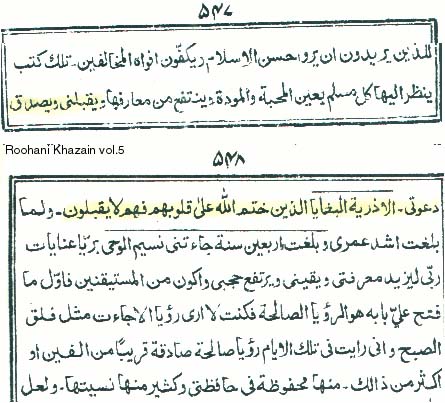 ۵۴۷
للذين يريدون ان يروا حسن الاسلام ويكفّون افواه المخالفين۔ تلك كتب
ينظر اليها كل مسلم بعين المحبة والمودة وينتفع من معارفها ويقبلنى ويصدق
Roohani Khazain vol.5
۵۴۸
دعوتى۔ الا ذرية البغايا الذين ختم الله علىٰ قلوبهم فهم لا يقبلون۔ ولما
بلغت اشد عمرى وبلغت اربعين سنة جاءتنى نسيم الوحى بريّا عنايات
ربّى ليزيد معرفتى ويقينى ويرتفع حجبى واكون من المستيقنين فاوّل ما
فتح علىّ بابه هو الرؤيا الصالحة فكنت لا ارى رؤيا الا جاءت مثل فلق
الصبح وانى رايت فى تلك الايام رؤيا صالحة صادقة قريبًا من الفين او
اكثر من ذالك۔ منها محفوظة فى حافظتى وكثير منها نسيتها۔ ولعل